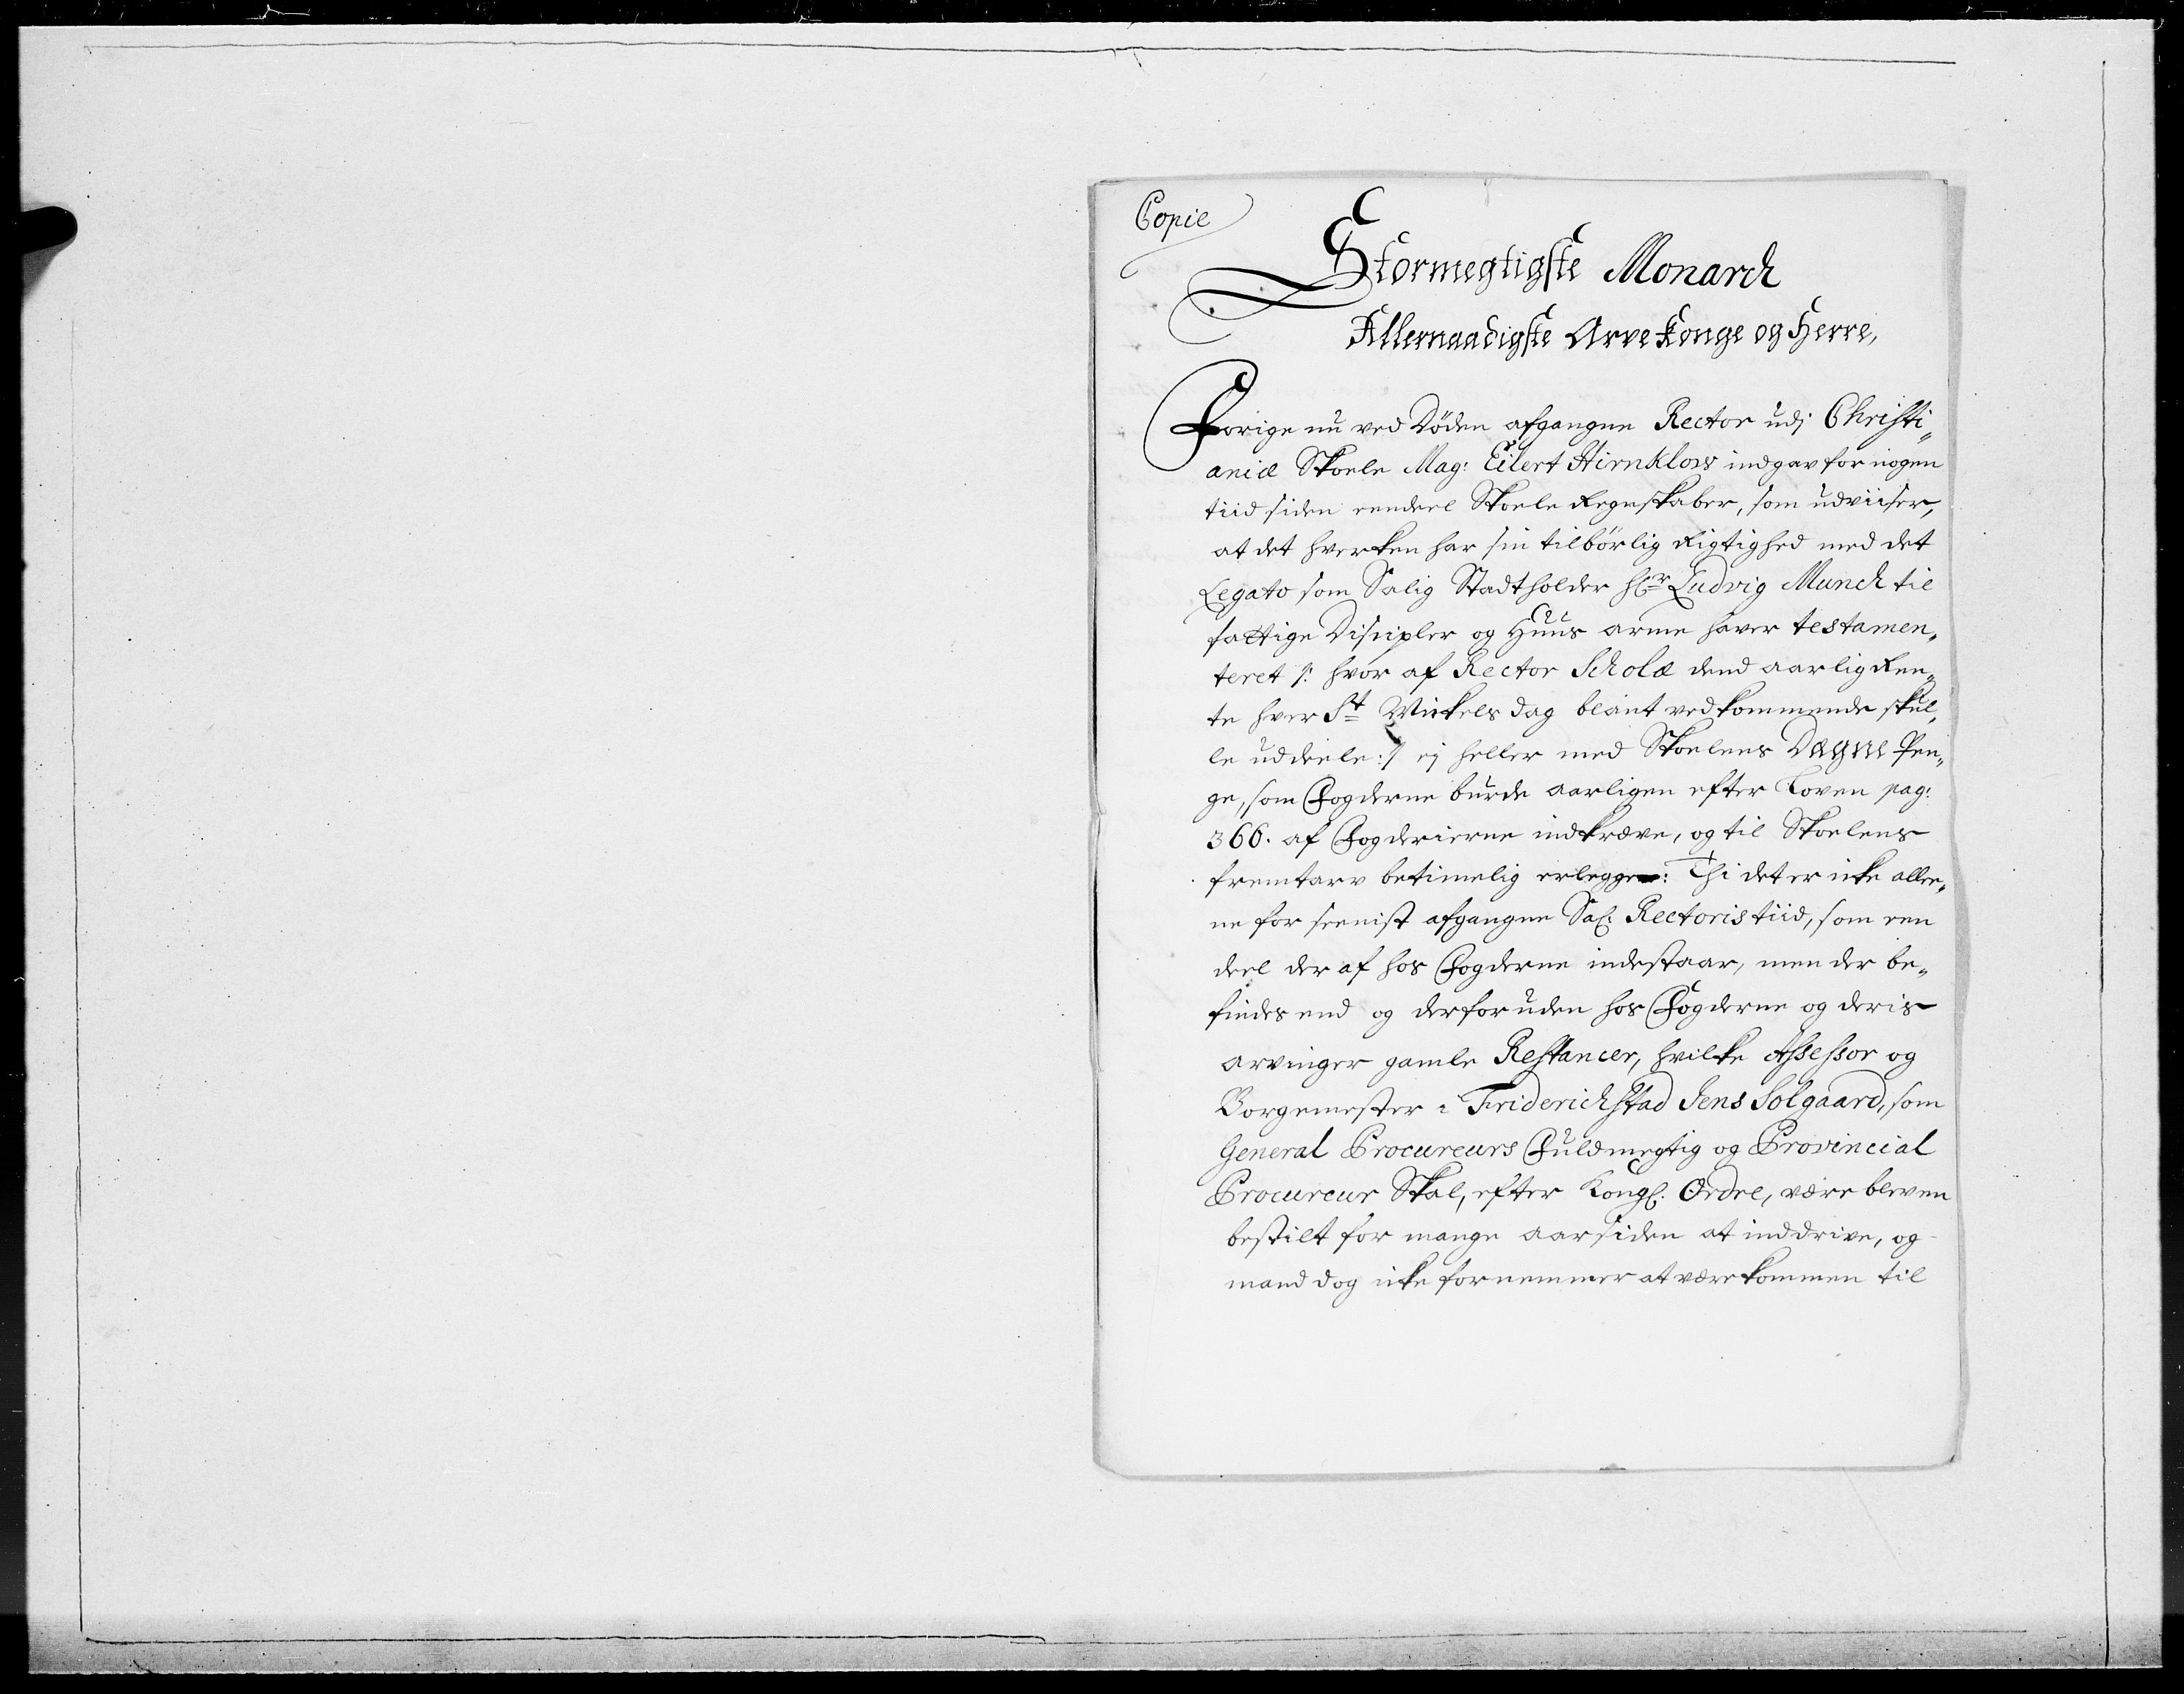 Copie
Stormegtigste Monarch
Allernaadigste Arve Konge og Herre,
Forige nu ved Døden afgangne Rector udj Christi„
aniæ Skoele Mag: Eilert Hirnklow indgav for nogen
tiid siden eendeel Skoele Regnskaber, som udviiser,
at det hverken har sin tilbørlig Rigtighed med det
Legato som Salig Stadtholder Hr Ludvig Munch til
fattige Discipler og Huus arme haver testamen„
teret /: hvor af Rector Scholæ dend aarlig Ren„
te hver St Mickels dag blant vedkommende skul„
le uddeele :/ ej heller med Skoelens Dægne Pen„
ge, som Fogderne burde aarligen efter Loven pag:
366. af Fogderierne indkræve, og til Skoelens
fremtarv betimelig erlegge: Thi det er icke alle„
ne for seenist afgangne Sal: Rectoris tiid, som een
deel der af hos Fogderne indestaar, men der be„
findes end og derforuden hos Fogderne og deris
arvinger gamle Restancer, hvilke Assessor og
Borgemester i Friderichstad Jens Solgaard, som
General Procureurs Fuldmegtig og Provincial
Procureur Skal, efter Kongl: Ordre, være bleven
bestilt for mange aar siden at inddrive, og
mand dog icke fornemmer at være kommen til